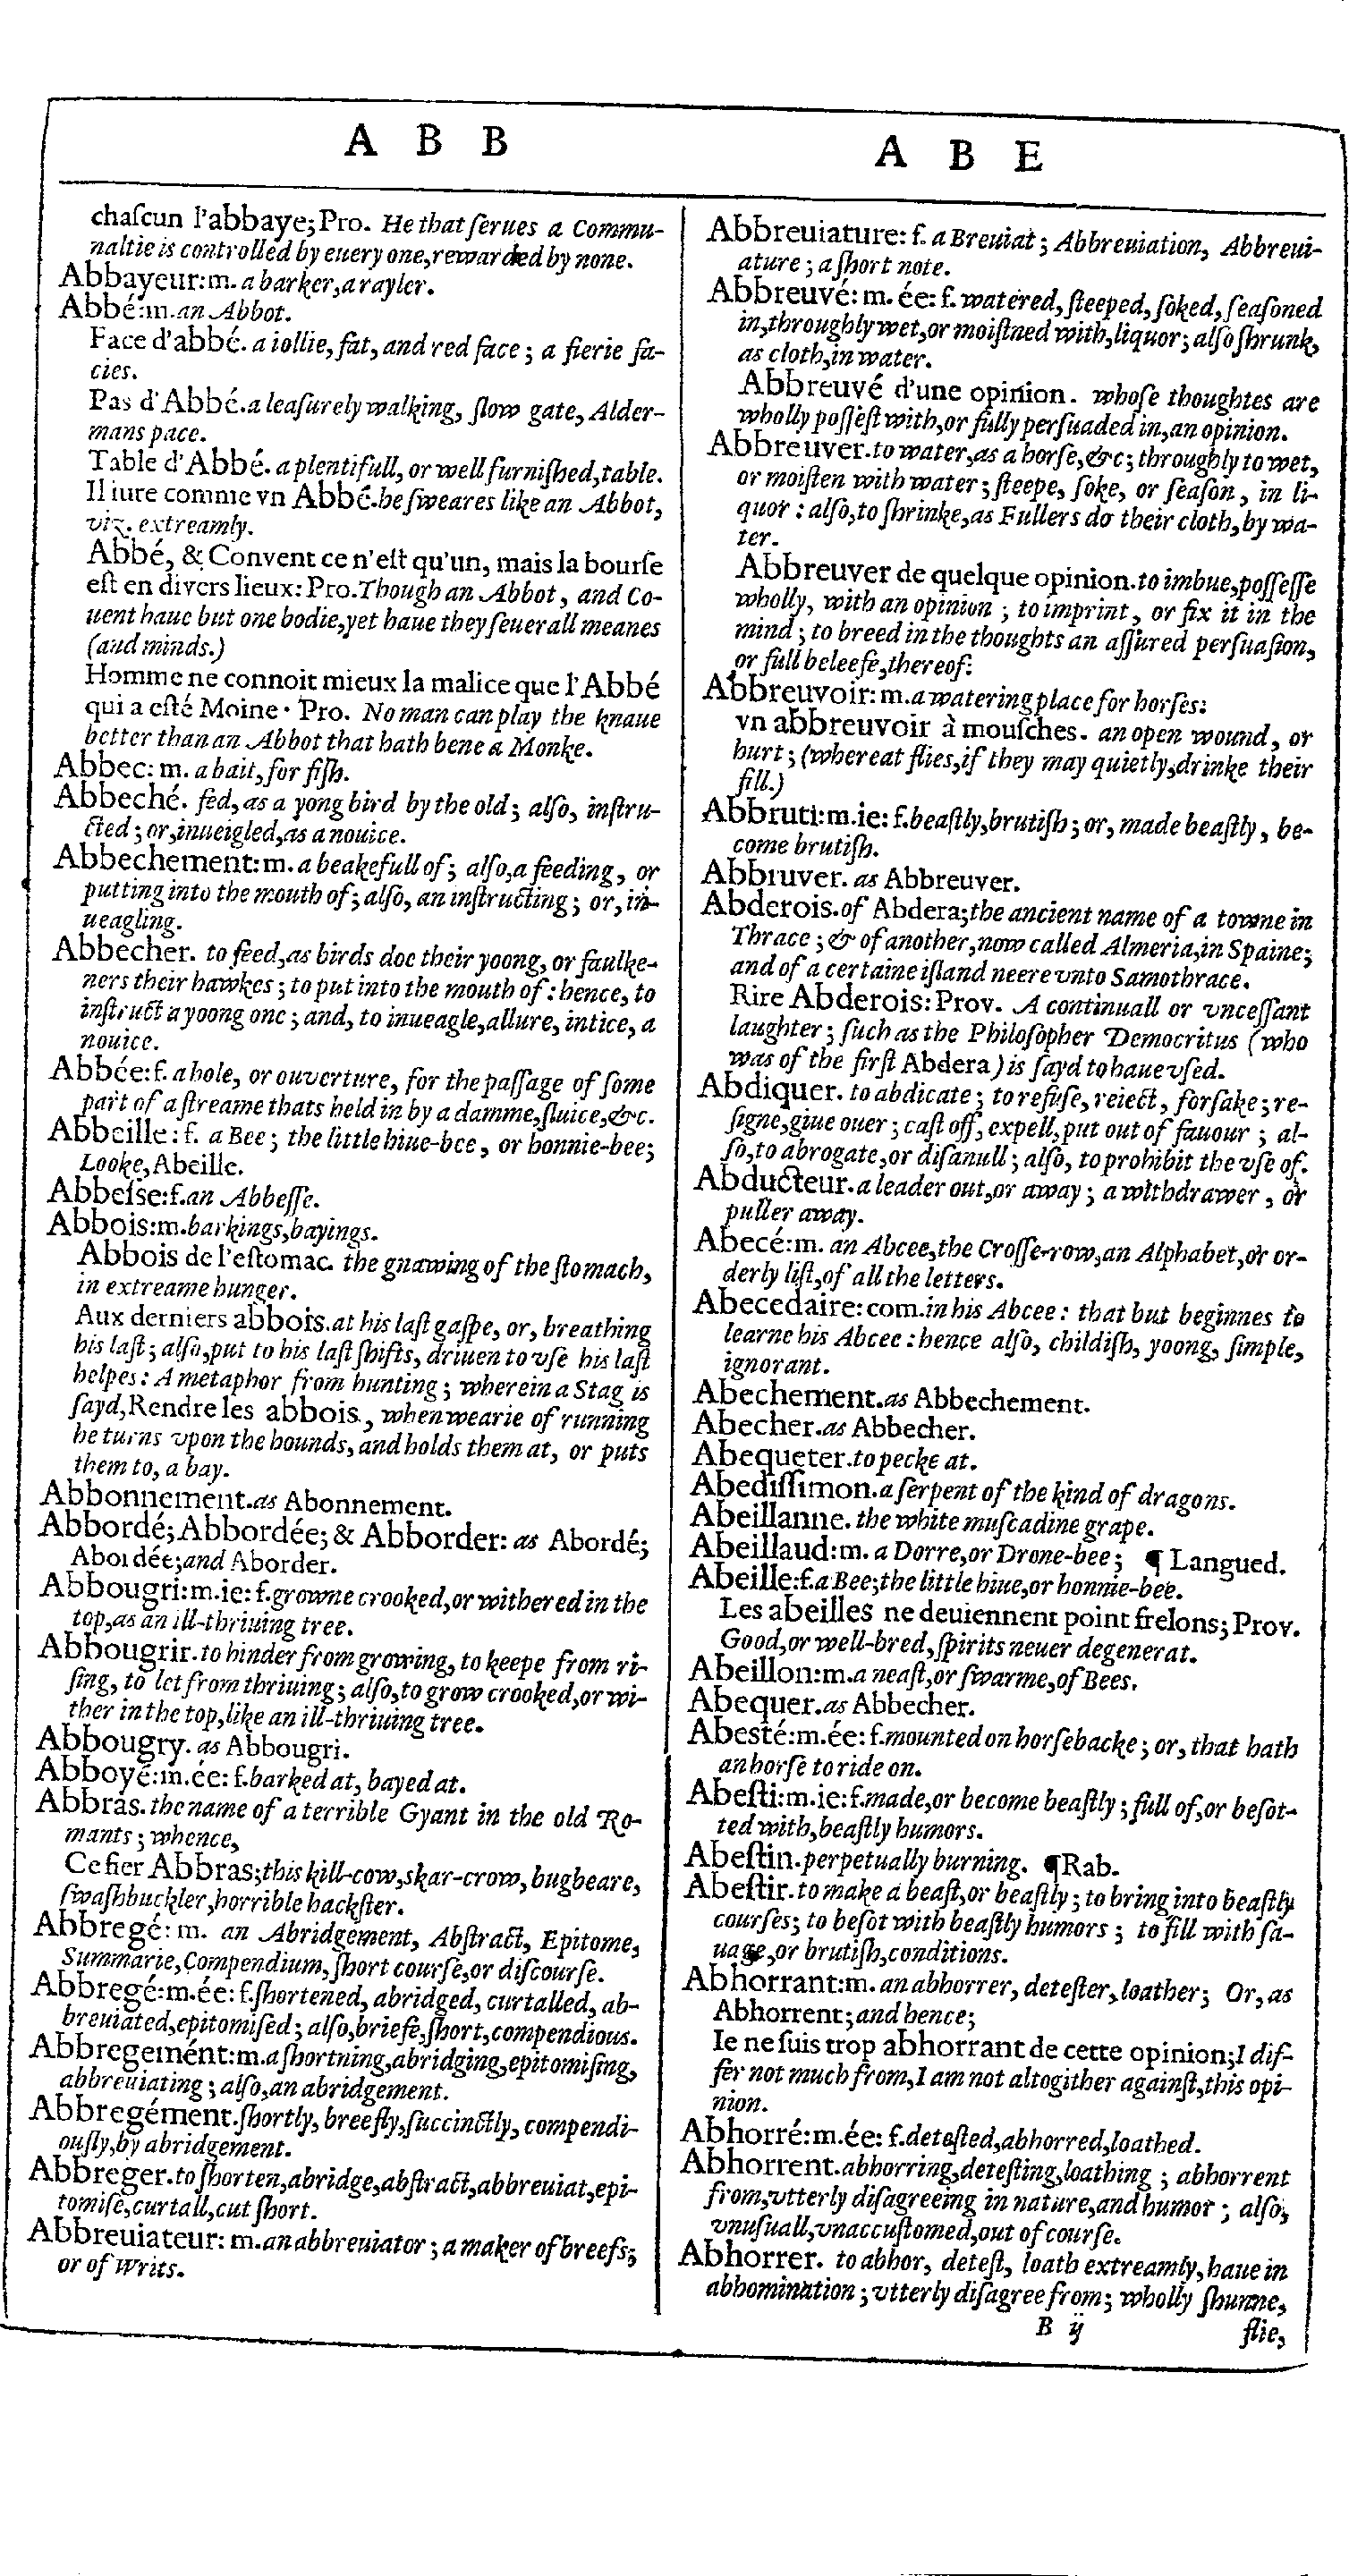 A B B
chaſcun l'abbaye; Pro. He that ſerues a Commu-
naltie is controlled by euery one, rewarded by none.
Abbayeur: m. a barker, a rayler.
Abbé: m. an Abbot.
Face d'abbé. a iollie, fat, and red face; a fierie fa-
cies.
Pas d'Abbé. a leaſurely walking, ſlow gate, Alder-
mans pace.
Table d'Abbé. a plentifull, or well furniſhed, table.
Il iure comme vn Abbé. he ſweares like an Abbot,
viz. extreamly.
Abbé, & Convent ce n'eſt qu'un, mais la bourſe
eſt en divers lieux: Pro. Though an Abbot, and Co-
uent haue but one bodie, yet haue they ſeuerall meanes
(aud minds.)
Homme ne connoit mieux la malice que l'Abbé
qui a eſté Moine. Pro. No man can play the knaue
better than an Abbot that hath bene a Monke.
Abbec: m. a bait, for fiſh.
Abbeché. fed, as a yong bird by the old; alſo, inſtru-
cted; or, inueigled, as a nouice.
Abbechement: m. a beakefull of; alſo, a feeding, or
putting into the mouth of; alſo, an inſtructing; or, in-
ueagling.
Abbecher. to feed, as birds doe their yoong, or faulke-
ners their hawkes; to put into the mouth of: hence, to
inſtruct a yoong one; and, to inueagle, allure, intice, a
nouice.
Abbée: f. a hole, or ouverture, for the paſſage of ſome
part of a ſtreame thats held in by a damme, ſluice, &c.
Abbeille: f. a Bee; the little hiue-bee, or honnie-bee;
Looke, Abeille.
Abbeſse: f. an Abbeſſe.
Abbois: m. barkings, bayings.
Abbois de l'eſtomac. the gnawing of the ſtomach,
in extreame hunger.
Aux derniers abbois. at his laſt gaſpe, or, breathing
his laſt; alſo, put to his laſt ſhifts, driuen to vſe his laſt
helpes: A metaphor from hunting; wherein a Stag is
ſayd, Rendre les abbois, when wearie of running
he turns vpon the hounds, and holds them at, or puts
them to, a bay.
Abbonnement. as Abonnement.
Abbordé; Abbordée; & Abborder: as Abordé;
Abordée; and Aborder.
Abbougri: m. ie: f. growne crooked, or withered in the
top, as an ill-thriuing tree.
Abbougrir. to hinder from growing, to keepe from ri-
ſing, to let from thriuing; alſo, to grow crooked, or wi-
ther in the top, like an ill-thriuing tree.
Abbougry. as Abbougri.
Abboyé: m. ée: f. barked at, bayed at.
Abbras. the name of a terrible Gyant in the old Ro-
mants; whence,
Ce fier Abbras; this kill-cow, skar-crow, bugbeare,
ſwaſhbuckler, horrible hackſter.
Abbregé: m. an Abridgement, Abſtract, Epitome,
Summarie, Compendium, ſhort courſe, or diſcourſe.
Abbregé: m. ée: f. ſhortened, abridged, curtalled, ab-
breuiated, epitomiſed; alſo, briefe, ſhort, compendious.
Abbregemént: m. a ſhortning, abridging, epitomiſing,
abbreuiating; alſo, an abridgement.
Abbregément. ſhortly, breefly, ſuccinctly, compendi-
ouſly, by abridgement.
Abbreger. to ſhorten, abridge, abſtract, abbreuiat, epi-
tomiſe, curtall, cut ſhort.
Abbreuiateur: m. an abbreuiator; a maker of breefs;
or of Writs.
A B E
Abbreuiature: f. a Breuiat; Abbreuiation, Abbreui-
ature; a ſhort note.
Abbreuvé: m. ée: f. watered, ſteeped, ſoked, ſeaſoned
in, throughly wet, or moiſtned with, liquor; alſo ſhrunk,
as cloth, in water.
Abbreuvé d'une opinion. whoſe thoughtes are
wholly poſſeſt with, or fully perſuaded in, an opinion.
Abbreuver. to water, as a horſe, &c; throughly to wet,
or moiſten with water; ſteepe, ſoke, or ſeaſon, in li-
quor: alſo, to ſhrinke, as Fullers do their cloth, by wa-
ter.
Abbreuver de quelque opinion. to imbue, poſſeſſe
wholly, with an opinion; to imprint, or fix it in the
mind; to breed in the thoughts an aſſured perſuaſion,
or full beleefe, thereof:
Abbreuvoir: m. a watering place for horſes:
vn abbreuvoir à mouſches. an open wound, or
hurt; (whereat flies, if they may quietly, drinke their
fill.)
Abbruti: m. ie: f. beaſtly, brutiſh; or, made beaſtly, be-
come brutiſh.
Abbruver. as Abbreuver.
Abderois. of Abdera; the ancient name of a towne in
Thrace; & of another, now called Almeria, in Spaine;
and of a certaine iſland neere vnto Samothrace.
Rire Abderois: Prov. A continuall or vnceſſant
laughter; ſuch as the Philoſopher Democritus (who
was of the firſt Abdera) is ſayd to haue vſed.
Abdiquer. to abdicate; to refuſe, reiect, forſake; re-
ſigne, giue ouer; caſt off, expell, put out of fauour; al-
ſo, to abrogate, or diſanull; alſo, to prohibit the vſe of.
Abducteur. a leader out, or away; a withdrawer, or
puller away.
Abecé: m. an Abcee, the Croſſe-row, an Alphabet, or or-
derly liſt, of all the letters.
Abecedaire: com. in his Abcee: that but beginnes to
learne his Abcee: hence alſo, childiſh, yoong, ſimple,
ignorant.
Abechement. as Abbechement.
Abecher. as Abbecher.
Abequeter. to pecke at.
Abediſſimon. a ſerpent of the kind of dragons.
Abeillanne. the white muſcadine grape.
Abeillaud: m. a Dorre, or Drone-bee; ¶ Langued.
Abeille: f. a Bee; the little hiue, or honnie-bee.
Les abeilles ne deuiennent point frelons; Prov.
Good, or well-bred, ſpirits neuer degenerat.
Abeillon: m. a neaſt, or ſwarme, of Bees.
Abequer. as Abbecher.
Abesté: m. ée: f. mounted on horſebacke; or, that hath
an horſe to ride on.
Abeſti: m. ie: f. made, or become beaſtly; full of, or beſot-
ted with, beaſtly humors.
Abeſtin. perpetually burning. ¶ Rab.
Abeſtir. to make a beaſt, or beaſtly; to bring into beaſtly
courſes; to beſot with beaſtly humors; to fill with ſa-
uage, or brutiſh, conditions.
Abhorrant: m. an abhorrer, deteſter, loather; Or, as
Abhorrent; and hence;
Ie ne ſuis trop abhorrant de cette opinion; I dif-
fer not much from, I am not altogither againſt, this opi-
nion.
Abhorré: m. ée: f. deteſted, abhorred, loathed.
Abhorrent. abhorring, deteſting, loathing; abhorrent
from, vtterly diſagreeing in nature, and humor; alſo,
vnuſuall, vnaccuſtomed, out of courſe.
Abhorrer. to abhor, deteſt, loath extreamly, haue in
abhomination; vtterly diſagree from; wholly ſhunne,
B ij
flie,